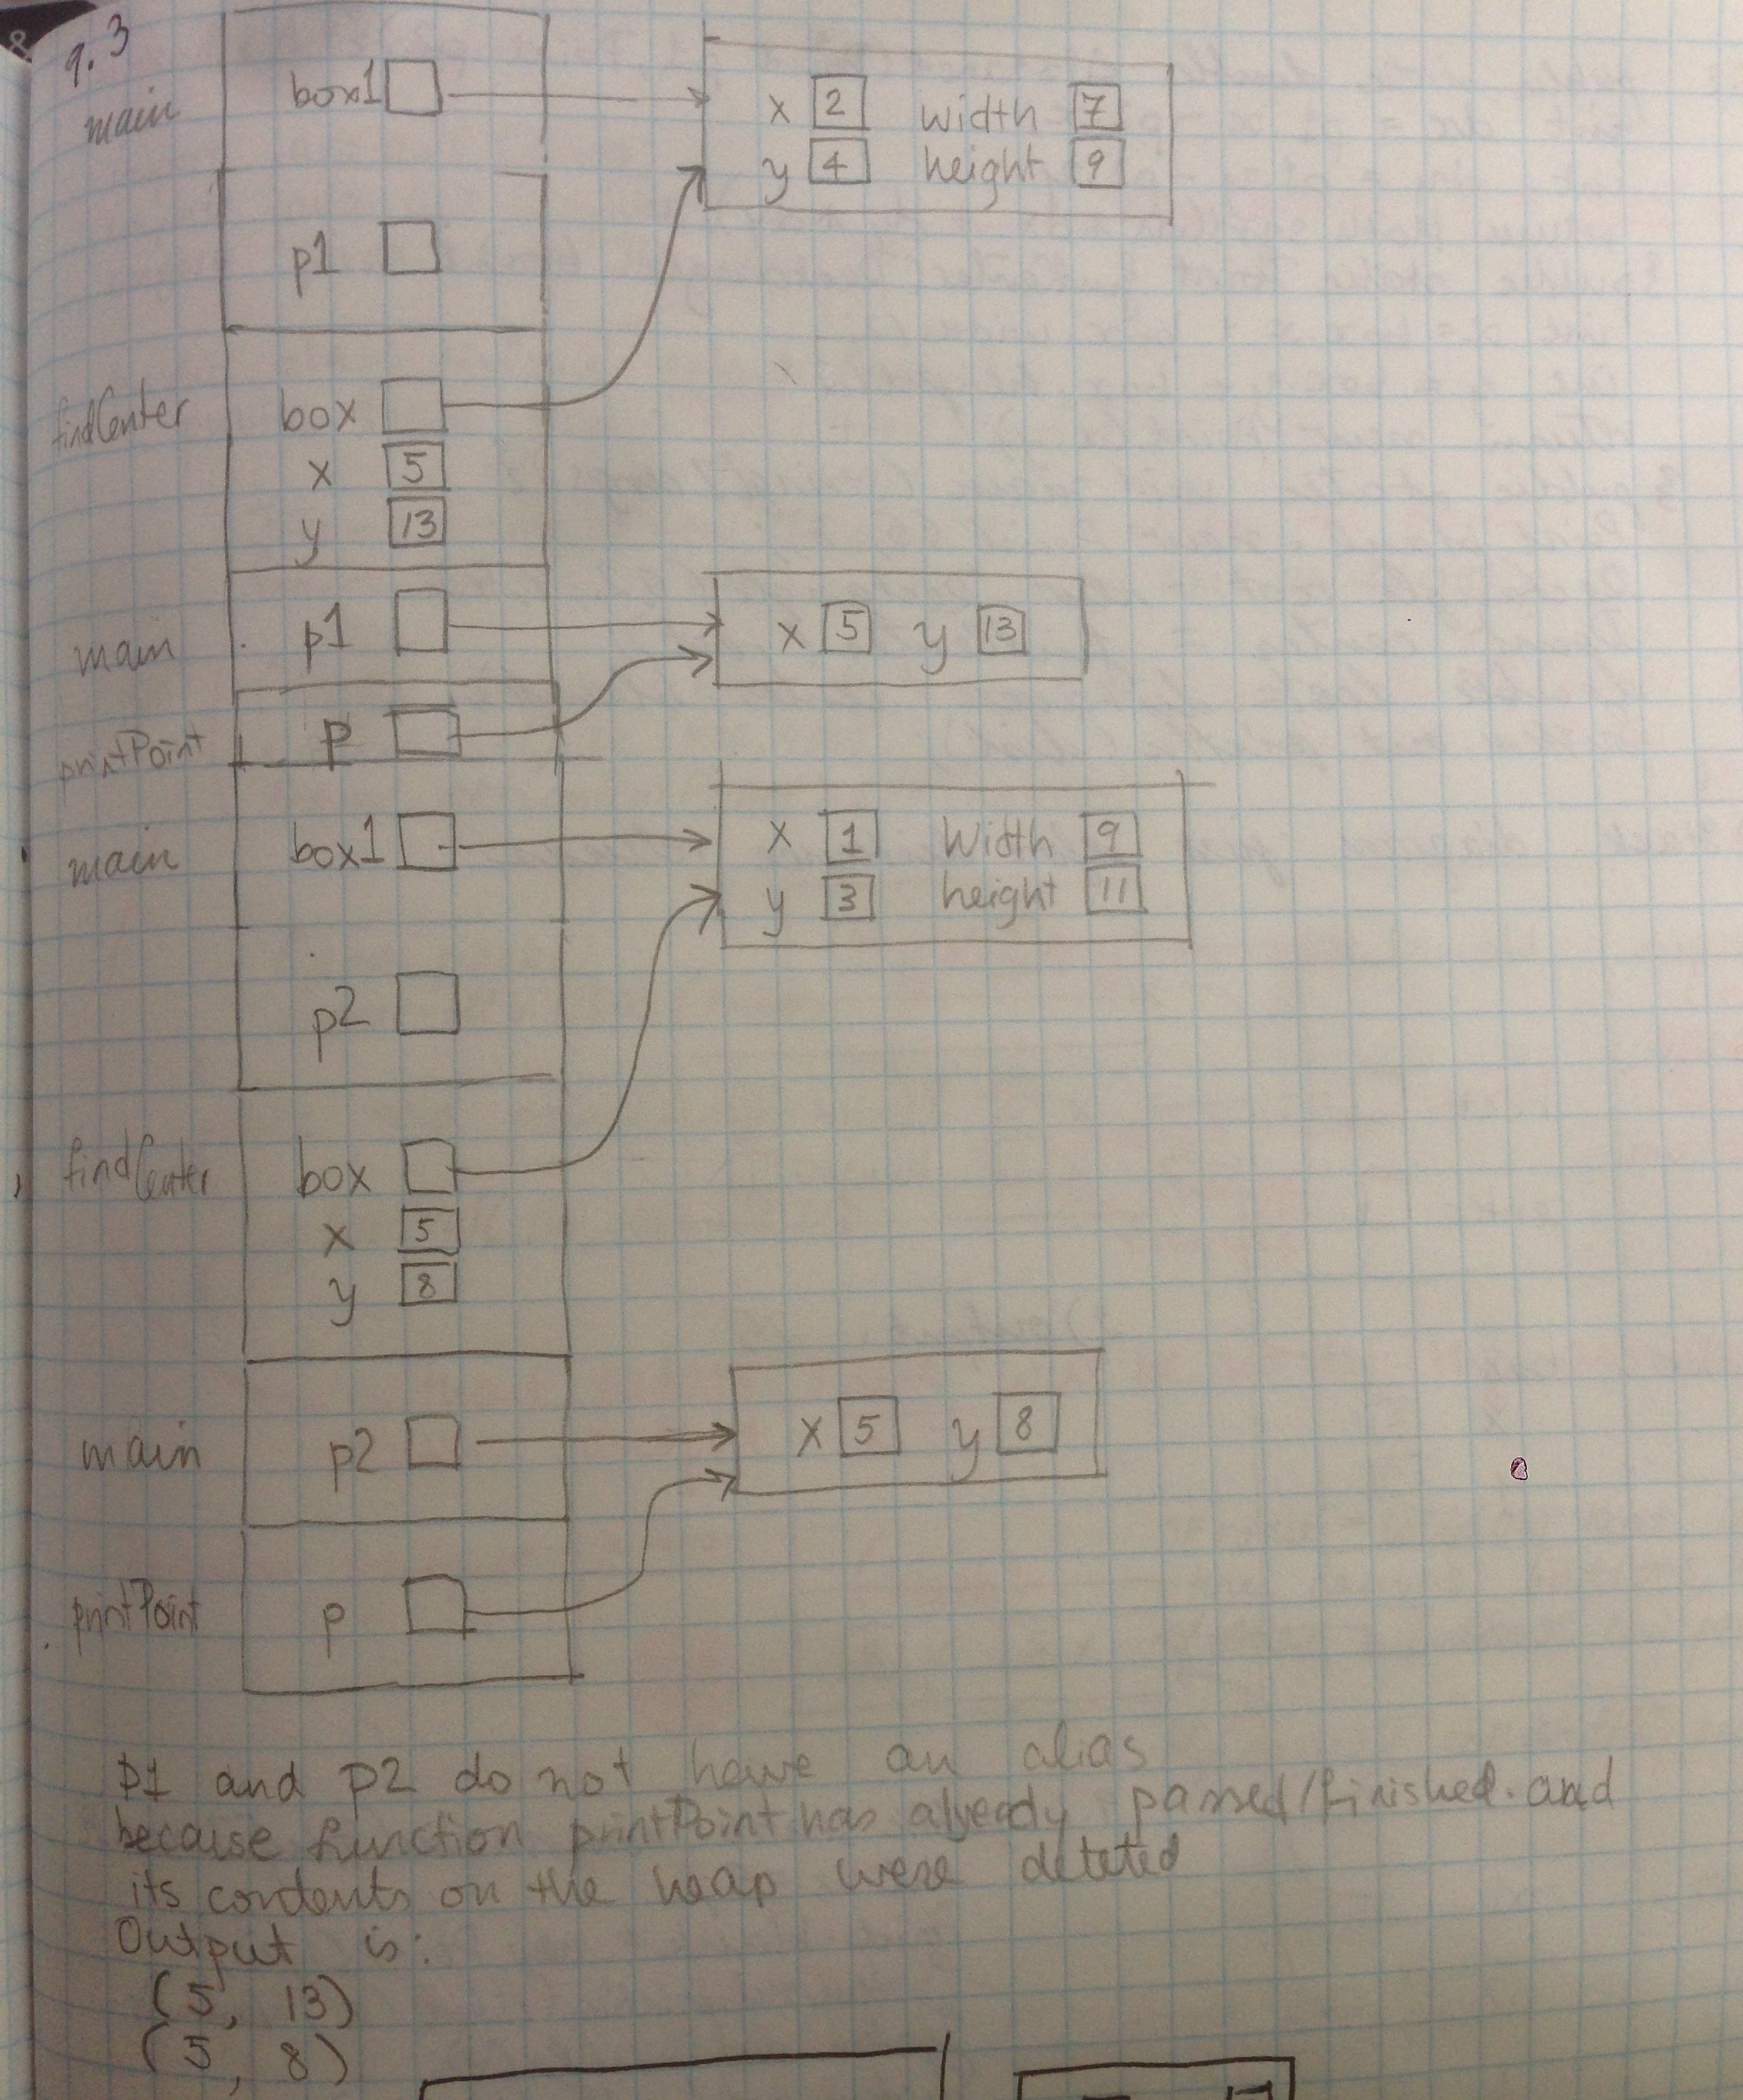 9.3
main
box1
x 2 width 7
y 4 height 9
p1
findCenter
box
x 5
y 13
main
p1
x 5 y 13
printPoint
p
main
box1
x 1 Width 9
y 3 height 11
p2
findCenter
box
x 5
y 8
main
p2
x 5 y 8
printPoint
p
p1 and p2 do not have an alias
because function printPoint has already passed/finished. and
its contents on the heap were deteted
Output is:
(5, 13)
(5, 8)